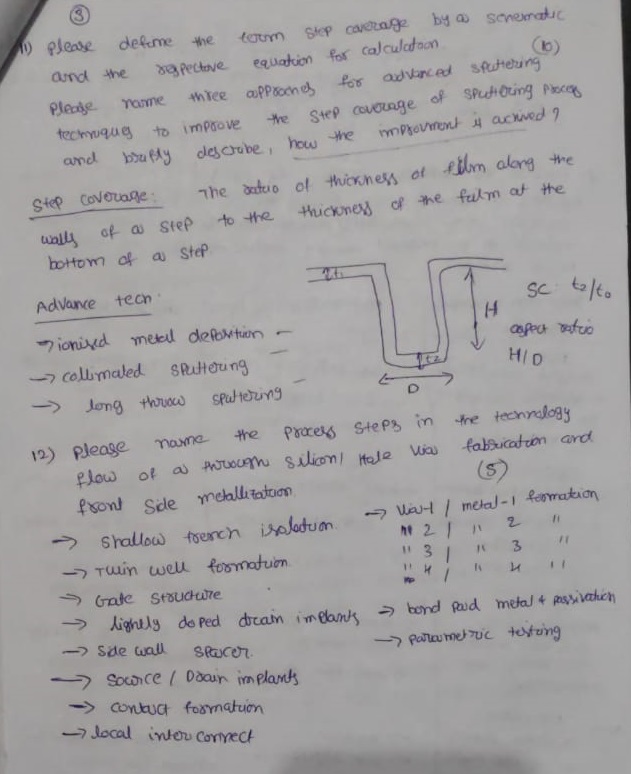 ③
11) Please define the term step coverage by a schematic
and the respective equation for calculation
(10)
Please name three approaches for advanced sputtering
techniques to improve the step coverage of sputtering process
and briefly describe, how the improvment is achived ?
Step coverage: The ratio of thickness of film along the
walls of a step to the thickness of the film at the
bottom of a step.
Advance tech:
→ ionised metal deposition -
→ collimated sputtering -
→ long throw sputtering -
t₁
t₂
H
D
SC: t₂/t₀
aspect ratio
H/D
12) Please name the process steps in the technology
flow of a through silicon/ Hole Via fabrication and
front side metallization
(5)
→ shallow trench isolation
→ Twin well formation
→ Gate structure
→ lightly doped drain implants
→ side wall spacer
→ source / Drain implants
→ contact formation
→ local inter connect
→ Via-1 / metal-1 formation
" 2 / " 2 "
" 3 / " 3 "
" 4 / " 4 "
→ bond pad metal + passivation
→ parametric testing